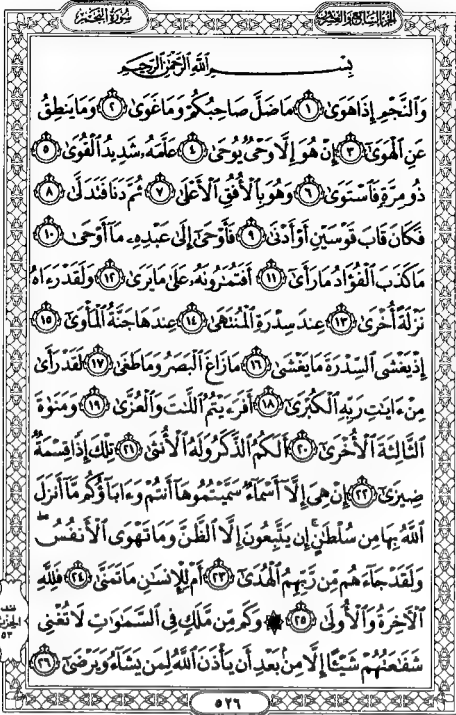 سُورَةُ النَّجْمِ
الجزء السابع والعشرون
بِسْمِ اللَّهِ الرَّحْمَٰنِ الرَّحِيمِ
وَالنَّجْمِ إِذَا هَوَىٰ ١ مَا ضَلَّ صَاحِبُكُمْ وَمَا غَوَىٰ ٢ وَمَا يَنطِقُ
عَنِ الْهَوَىٰ ٣ إِنْ هُوَ إِلَّا وَحْيٌ يُوحَىٰ ٤ عَلَّمَهُ شَدِيدُ الْقُوَىٰ ٥
ذُو مِرَّةٍ فَاسْتَوَىٰ ٦ وَهُوَ بِالْأُفُقِ الْأَعْلَىٰ ٧ ثُمَّ دَنَا فَتَدَلَّىٰ ٨
فَكَانَ قَابَ قَوْسَيْنِ أَوْ أَدْنَىٰ ٩ فَأَوْحَىٰ إِلَىٰ عَبْدِهِ مَا أَوْحَىٰ ١٠
مَا كَذَبَ الْفُؤَادُ مَا رَأَىٰ ١١ أَفَتُمَٰرُونَهُ عَلَىٰ مَا يَرَىٰ ١٢ وَلَقَدْ رَءَاهُ
نَزْلَةً أُخْرَىٰ ١٣ عِندَ سِدْرَةِ الْمُنتَهَىٰ ١٤ عِندَهَا جَنَّةُ الْمَأْوَىٰ ١٥
إِذْ يَغْشَى السِّدْرَةَ مَا يَغْشَىٰ ١٦ مَا زَاغَ الْبَصَرُ وَمَا طَغَىٰ ١٧ لَقَدْ رَأَىٰ
مِنْ ءَايَٰتِ رَبِّهِ الْكُبْرَىٰ ١٨ أَفَرَءَيْتُمُ اللَّٰتَ وَالْعُزَّىٰ ١٩ وَمَنَوٰةَ
الثَّالِثَةَ الْأُخْرَىٰ ٢٠ أَلَكُمُ الذَّكَرُ وَلَهُ الْأُنثَىٰ ٢١ تِلْكَ إِذًا قِسْمَةٌ
ضِيزَىٰ ٢٢ إِنْ هِيَ إِلَّا أَسْمَاءٌ سَمَّيْتُمُوهَا أَنتُمْ وَءَابَاؤُكُم مَّا أَنزَلَ
اللَّهُ بِهَا مِن سُلْطَٰنٍ ۚ إِن يَتَّبِعُونَ إِلَّا الظَّنَّ وَمَا تَهْوَى الْأَنفُسُ ۖ
وَلَقَدْ جَاءَهُم مِّن رَّبِّهِمُ الْهُدَىٰ ٢٣ أَمْ لِلْإِنسَٰنِ مَا تَمَنَّىٰ ٢٤ فَلِلَّهِ
الْآخِرَةُ وَالْأُولَىٰ ٢٥ ۞ وَكَم مِّن مَّلَكٍ فِي السَّمَٰوَٰتِ لَا تُغْنِي
شَفَٰعَتُهُمْ شَيْئًا إِلَّا مِن بَعْدِ أَن يَأْذَنَ اللَّهُ لِمَن يَشَاءُ وَيَرْضَىٰ ٢٦
٥٢٦